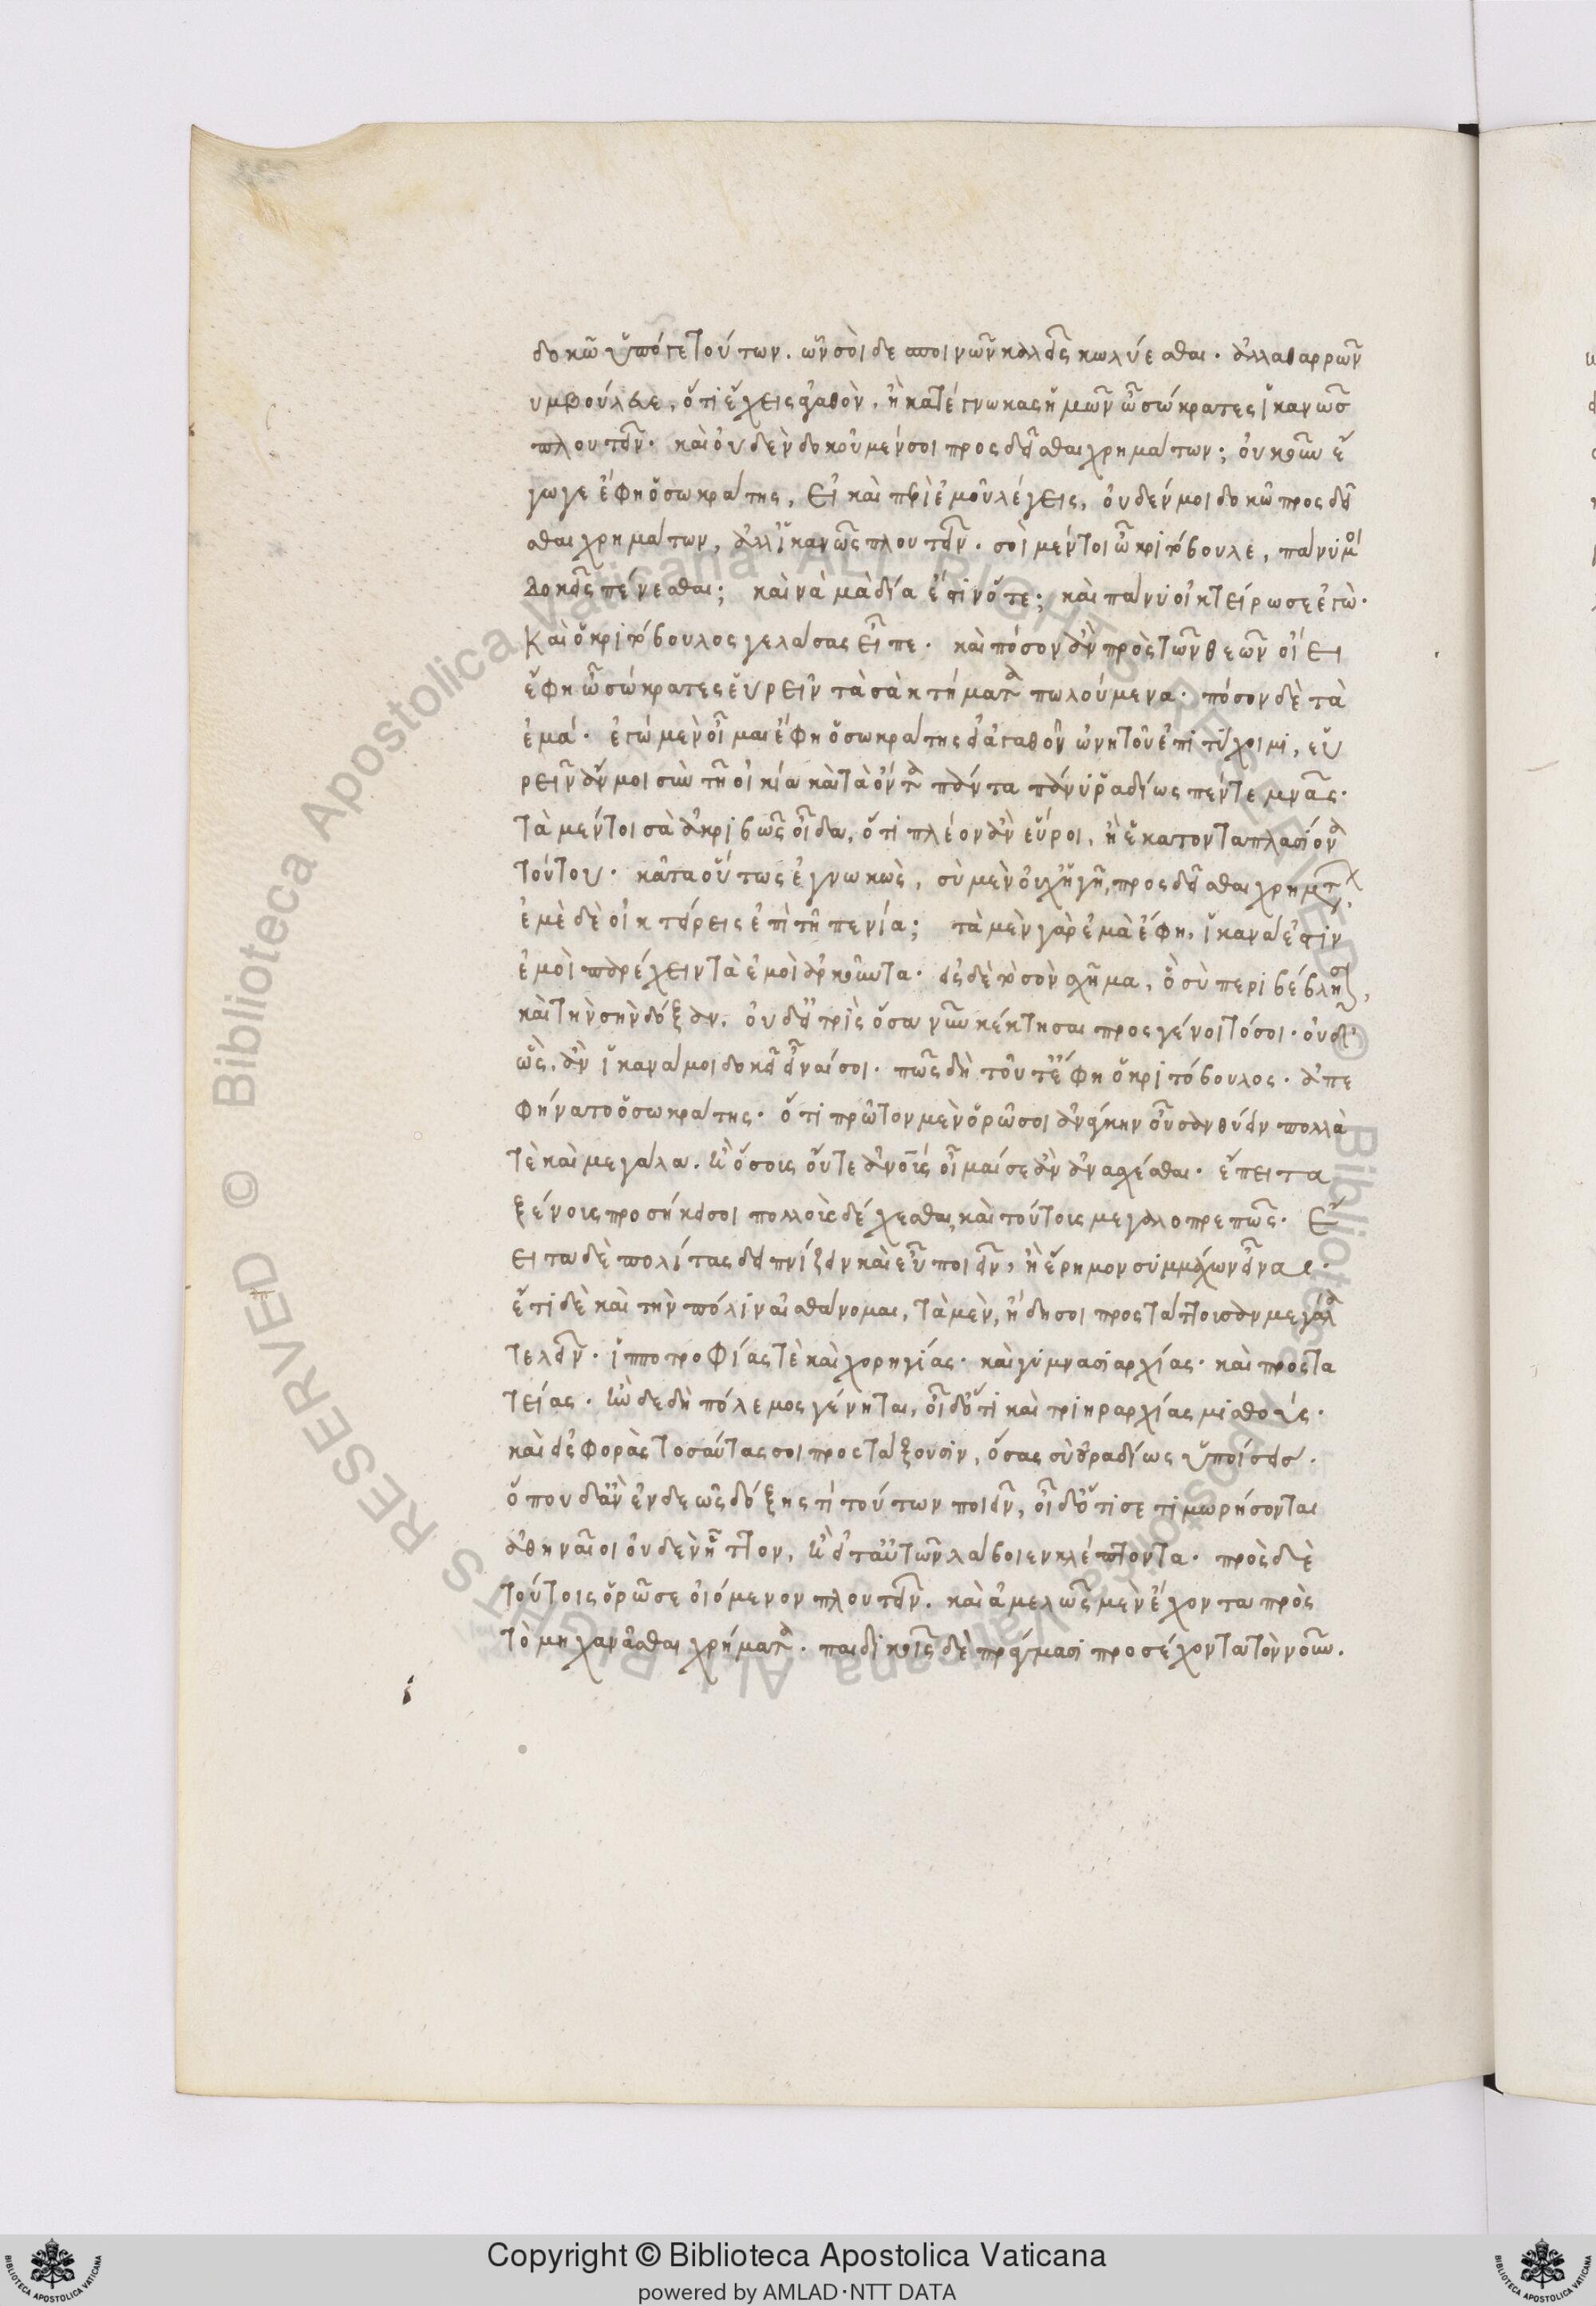 δοκῶ ὑπό γε τούτων. ὧν σὺ δεσποινῶν καλεῖς κωλύεσθαι. ἀλλὰ θαρρῶν
συμβούλευε, ὅτι ἔχεις ἀγαθὸν, ἢ κατέγνωκας ἡμῶν ὦ σώκρατες ἱκανῶσ
πλουτεῖν. καὶ οὐδὲν δοκοῦμέν σοι προσδεῖσθαι χρημάτων; οὐκοῦν ἔ
γωγε ἔφη ὁ σωκράτης, εἰ καὶ περὶ ἐμοῦ λέγεις, οὐδέν μοι δοκῶ προσδεῖ
σθαι χρημάτων, ἀλλ' ἱκανῶς πλουτεῖν. σὺ μέντοι ὦ κριτόβουλε, πάνυ μοί
δοκεῖς πένεσθαι; καὶ ναὶ μὰ δία ἔστιν ὅτε; καὶ πάνυ οἰκτείρω σε ἐγώ.
Καὶ ὁ κριτόβουλος γελάσας εἶπε. καὶ πόσον ἂν πρὸς τῶν θεῶν οἴει
ἔφη ὦ σώκρατες εὑρεῖν τὰ σὰ κτήματα πωλούμενα. πόσον δὲ τὰ
ἐμά. ἐγὼ μὲν οἶμαι ἔφη ὁ σωκράτης εἰ ἀγαθοῦ ὠνητοῦ ἐπιτύχοιμι, εὑ
ρεῖν ἄν μοι σὺν τῇ οἰκίᾳ καὶ τὰ ὄντα πάντα πάνυ ῥαδίως πέντε μνᾶς.
τὰ μέντοι σὰ ἀκριβῶς οἶδα, ὅτι πλέον ἂν εὕροι, ἢ ἑκατονταπλασίονα
τούτου. κᾆτα οὕτως ἐγνωκὼς, σὺ μὲν οὐχ ἡγῇ προσδεῖσθαι χρημάτων,
ἐμὲ δὲ οἰκτείρεις ἐπὶ τῇ πενίᾳ; τὰ μὲν γὰρ ἐμὰ ἔφη, ἱκανά ἐστιν
ἐμοὶ παρέχειν τὰ ἐμοὶ ἀρκοῦντα. εἰς δὲ τὸ σὸν σχῆμα, ὃ σὺ περιβέβλησαι,
καὶ τὴν σὴν δόξαν, οὐδ' εἰ τρὶς ὅσα νῦν κέκτησαι προσγένοιτό σοι. οὐδ'
ὣς, ἂν ἱκανά μοι δοκεῖ εἶναί σοι. πῶς δὴ τοῦτ' ἔφη ὁ κριτόβουλος. ἀπε
φήνατο ὁ σωκράτης. ὅτι πρῶτον μὲν ὁρῶ σοι ἀνάγκην οὖσαν θύειν πολλά
τε καὶ μεγάλα. ἢ οὔσοις οὔτε ἀνοῖς οἶμαί σε ἂν ἀνασχέσθαι. ἔπειτα
ξένοις προσήκει σοι πολλοὺς δέχεσθαι, καὶ τούτοις μεγαλοπρεπῶς. Ἔ
ειτα δὲ πολίτας δειπνίζειν καὶ εὖ ποιεῖν, ἢ ἔρημον συμμάχων εἶναι.
ἔτι δὲ καὶ τὴν πόλιν αἰσθάνομαι, τὰ μὲν, ἤδη σοι προστάττουσαν μεγάλα
τελεῖν. ἱπποτροφίας τὲ καὶ χορηγίας. καὶ γυμνασιαρχίας. καὶ προστα
τείας. ἢν δὲ δὴ πόλεμος γένηται, οἶδ' ὅτι καὶ τριηραρχίας μισθούς.
καὶ εἰσφορὰς τοσαύτας σοι προστάξουσιν, ὅσας σὺ οὐ ῥαδίως ὑποίσεισ.
ὅπου δ' ἂν ἐνδεῶς δόξῃς τί τούτων ποιεῖν, οἶδ' ὅτι σε τιμωρήσονται
ἀθηναῖοι οὐδὲν ἧττον, ἢ εἰ τὰ αὑτῶν λάβοιεν κλέπτοντα. πρὸς δὲ
τούτοις ὁρῶ σε οἰόμενον πλουτεῖν. καὶ ἀμελῶς μὲν ἔχοντα πρὸς
τὸ μηχανᾶσθαι χρήματα. παιδικοῖς δὲ πράγμασι προσέχοντα τὸν νοῦν.
Copyright © Biblioteca Apostolica Vaticana
powered by AMLAD·NTT DATA